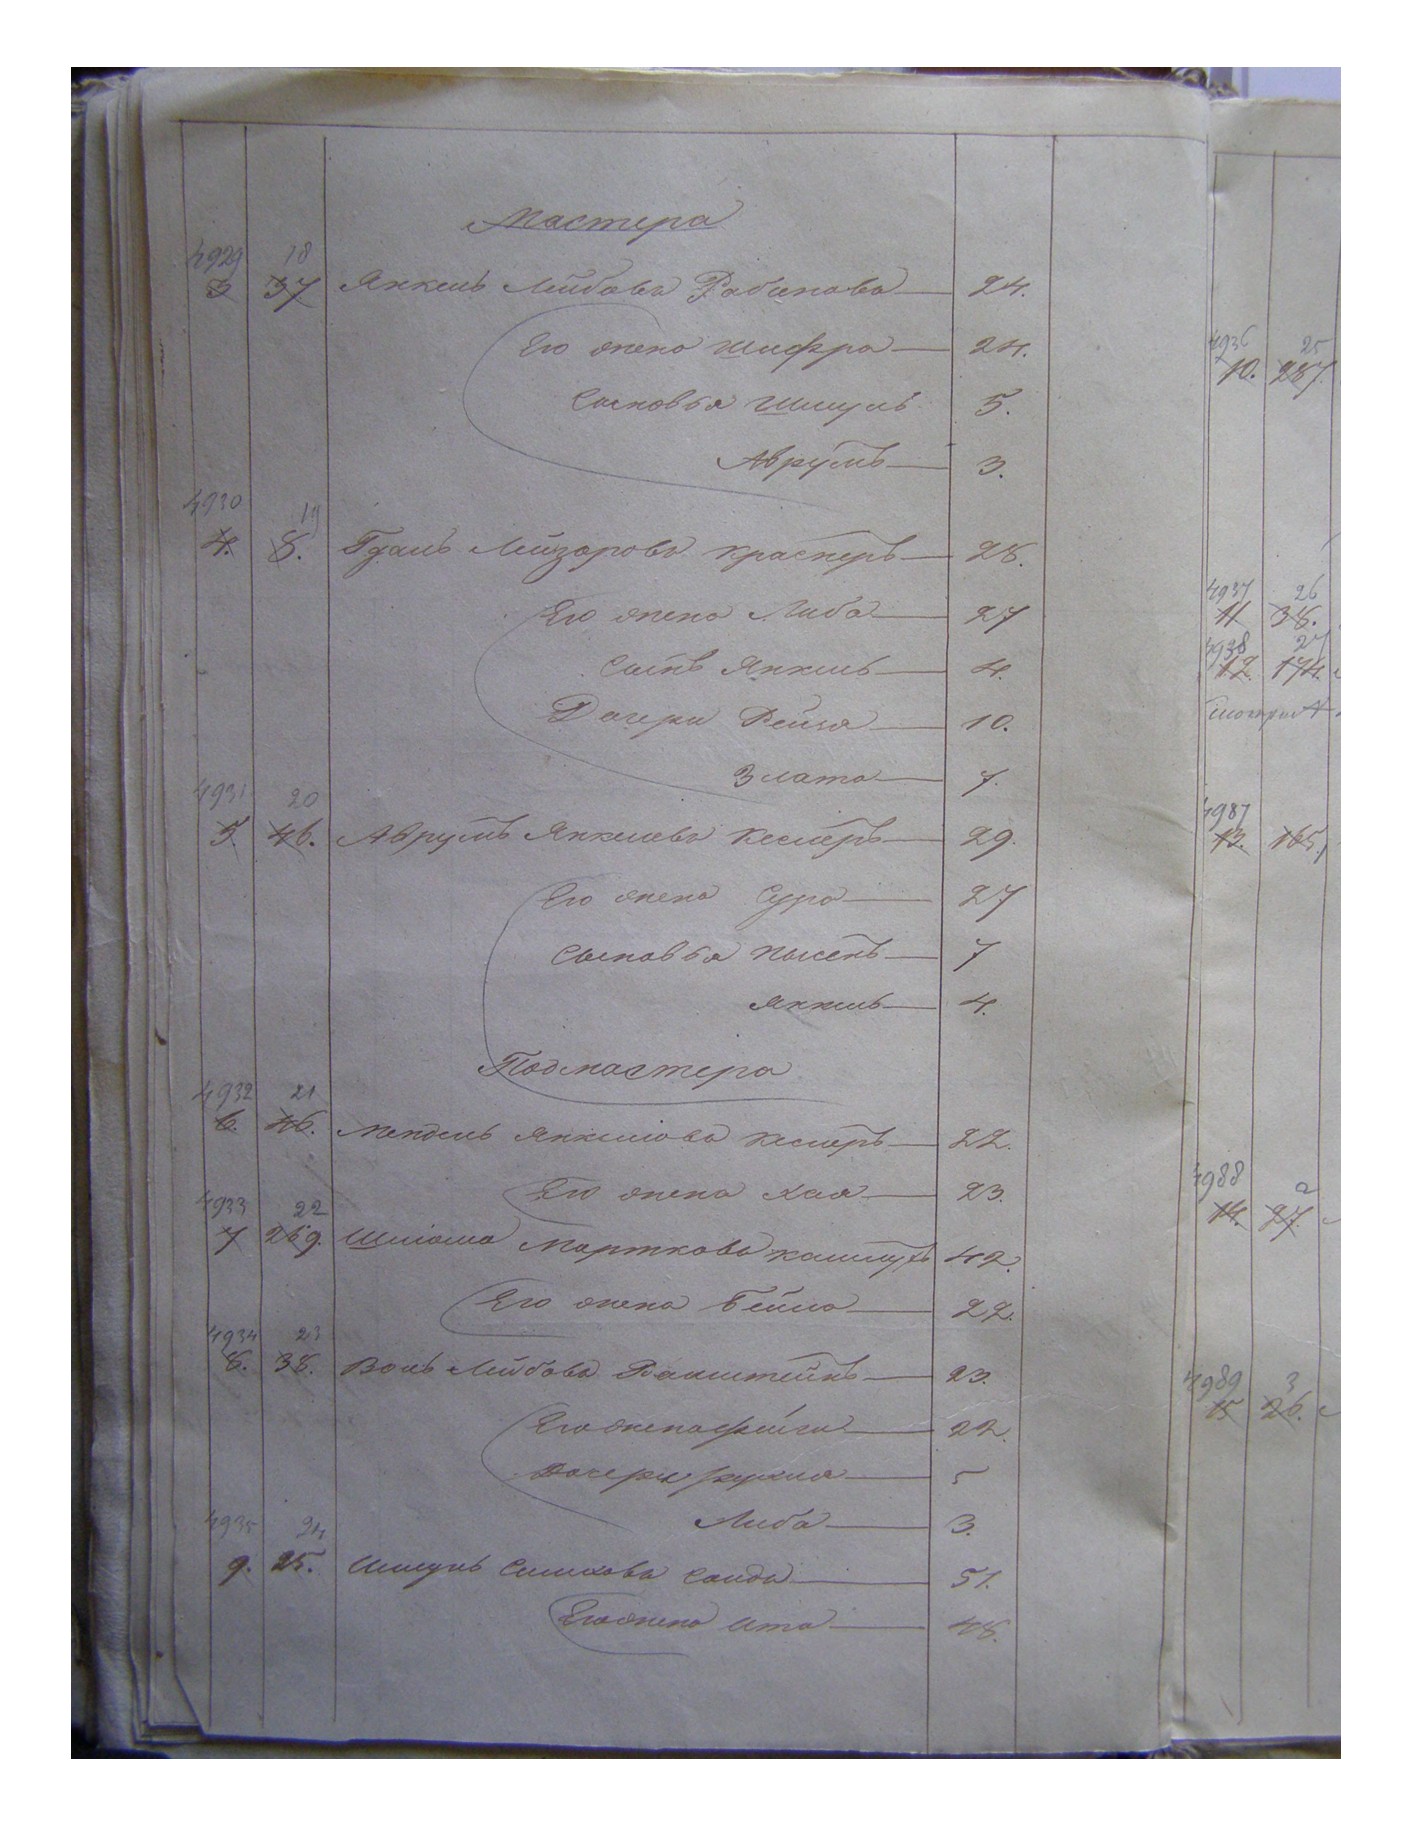 Мастера
4929 18
3 37 Янкель Лейбовъ Рабиновъ 24.
Его жена Шифра 24.
Сыновья Шмуль 5.
Аврумъ 3.
4930 19
4. 8. Гдаль Лейзоровъ 28.
Его жена Либа 27
Сынъ Янкель 4.
Дочери Рейзя 10.
Злата 7.
4931 20
5. 46. Аврумъ Янкелевъ Кеслеръ 29.
Его жена Сура 27
Сыновья 7
Янкель 4.
Подмастера
4932 21
6. 46. Мендель Янкелевъ Кеслеръ 22.
Его жена Хая 23.
4933 22
7 269. Шлёма Мортковъ 42.
Его жена Бейла 22.
4934 23
8. 38. Волъ Лейбовъ 23.
Его жена Фейга 22.
Дочери 5
Либа 3.
4935 24
9. 25. Шмуль 51.
Его жена Ита 48.
4936 25
10. 287.
4937 26
11 38.
4938 27
12. 174.
4987
13. 165.
4988 2
14. 27.
4989 3
15 26.